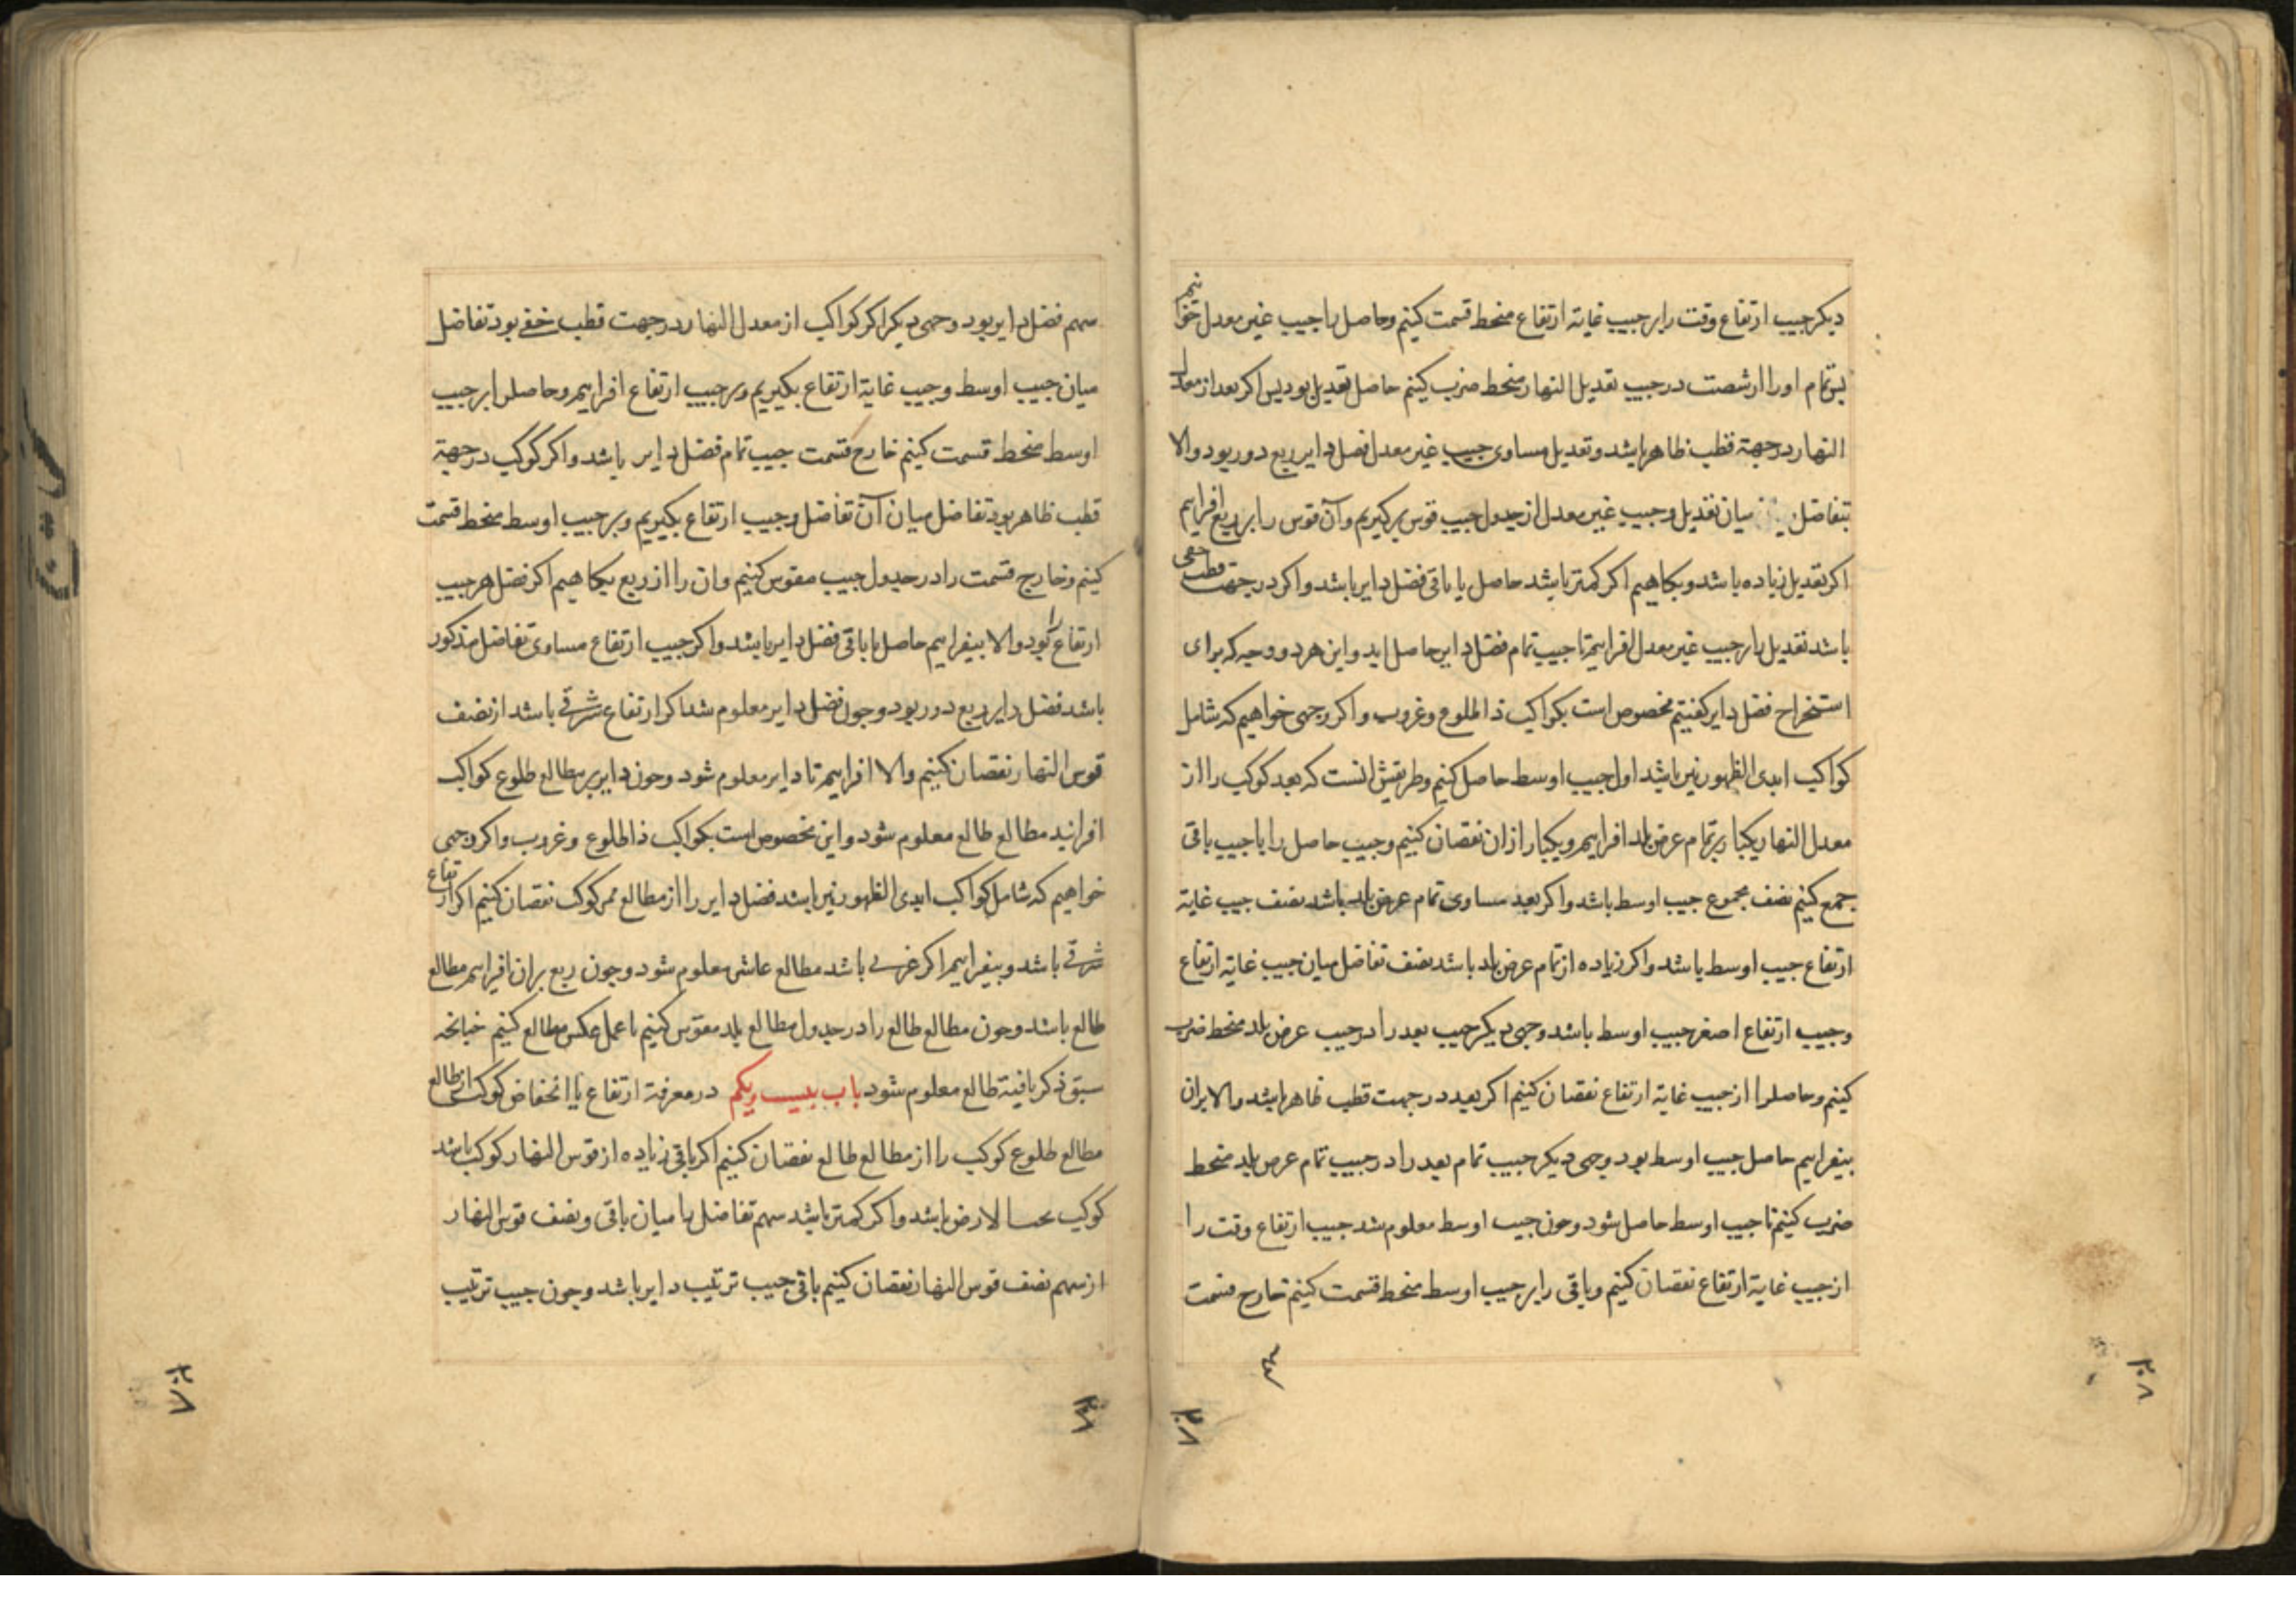 دیکر جیب ارتفاع وقت را بر جیب غایة ارتفاع منحط قسمت کنیم و حاصل را جیب غیر معدل خوانیم
پس تمام او را از شصت در جیب تعدیل النهار منحط ضرب کنیم حاصل تعدیل بود پس اکر بعد از معدل
النهار در جهة قطب ظاهر باشد و تعدیل مساوی جیب غیر معدل فضل دایر ربع دور بود و الا
بتفاضل میان تعدیل و جیب غیر معدل از جدول جیب قوس برکیریم و آن قوس را بر ربع افزاییم
اکر تعدیل زیاده باشد و بکاهیم اکر کمتر باشد حاصل یا باقی فضل دایر باشد و اکر در جهت قطب خفی
باشد تعدیل را بر جیب غیر معدل افزاییم تا جیب تمام فضل دایر حاصل اید و این هر دو وجه که برای
استخراج فضل دایر کفتیم مخصوص است بکواکب ذا الطلوع و غروب و اکر وجهی خواهیم که شامل
کواکب ابدی الظهور نیز باشد اول جیب اوسط حاصل کنیم و طریقش انست که بعد کوکب را از
معدل النهار یکبار بر تمام عرض بلد افزاییم و یکبار از ان نقصان کنیم و جیب حاصل را با جیب باقی
جمع کنیم نصف مجموع جیب اوسط باشد و اکر بعد مساوی تمام عرض بلد باشد نصف جیب غایة
ارتفاع جیب اوسط باشد و اکر زیاده از تمام عرض بلد باشد نصف تفاضل میان جیب غایة ارتفاع
و جیب ارتفاع اصغر جیب اوسط باشد وجهی دیکر جیب بعد را در جیب عرض بلد منحط ضرب
کنیم و حاصل را از جیب غایة ارتفاع نقصان کنیم اکر بعد در جهت قطب ظاهر باشد و الا بران
بیفزاییم حاصل جیب اوسط بود وجهی دیکر جیب تمام بعد را در جیب تمام عرض بلد منحط
ضرب کنیم تا جیب اوسط حاصل شود و چون جیب اوسط معلوم شد جیب ارتفاع وقت را
از جیب غایة ارتفاع نقصان کنیم و باقی را بر جیب اوسط منحط قسمت کنیم خارج قسمت
۲۰۸
۲۰۸
سهم فضل دایر بود وجهی دیکر اکر کواکب از معدل النهار در جهت قطب خفی بود تفاضل
میان جیب اوسط و جیب غایة ارتفاع بکیریم و بر جیب ارتفاع افزاییم و حاصل را بر جیب
اوسط منحط قسمت کنیم خارج قسمت جیب تمام فضل دایر باشد و اکر کوکب در جهة
قطب ظاهر بود تفاضل میان آن تفاضل و جیب ارتفاع بکیریم و بر جیب اوسط منحط قسمت
کنیم و خارج قسمت را در جدول جیب مقوس کنیم و ان را از ربع بکاهیم اکر فضل هر جیب
ارتفاع را بود و الا بیفزاییم حاصل یا باقی فضل دایر باشد و اکر جیب ارتفاع مساوی تفاضل مذکور
باشد فضل دایر ربع دور بود و چون فضل دایر معلوم شد اکر ارتفاع شرقی باشد از نصف
قوس النهار نقصان کنیم و الا افزاییم تا دایر معلوم شود و چون دایر بر مطالع طلوع کواکب
افزایند مطالع طالع معلوم شود و این مخصوص است بکواکب ذا طلوع و غروب و اکر وجهی
خواهیم که شامل کواکب ابدی الظهور نیز باشد فضل دایر را از مطالع ممر کوکب نقصان کنیم اکر ارتفاع
شرقی باشد و بیفزاییم اکر غربی باشد مطالع عاشر معلوم شود و چون ربع بران افزاییم مطالع
طالع باشد و چون مطالع طالع را در جدول مطالع بلد مقوس کنیم یا عمل عکس مطالع کنیم چنانچه
سبق ذکر یافته طالع معلوم شود باب بیست و یکم در معرفة ارتفاع یا انحفاض کوکب از طالع
مطالع طلوع کوکب را از مطالع طالع نقصان کنیم اکر باقی زیاده از قوس النهار کوکب باشد
کوکب تحت الارض باشد و اکر کمتر باشد سهم تفاضل را میان باقی و نصف قوس النهار
از سهم نصف قوس النهار نقصان کنیم باقی جیب ترتیب دایر باشد و چون جیب ترتیب